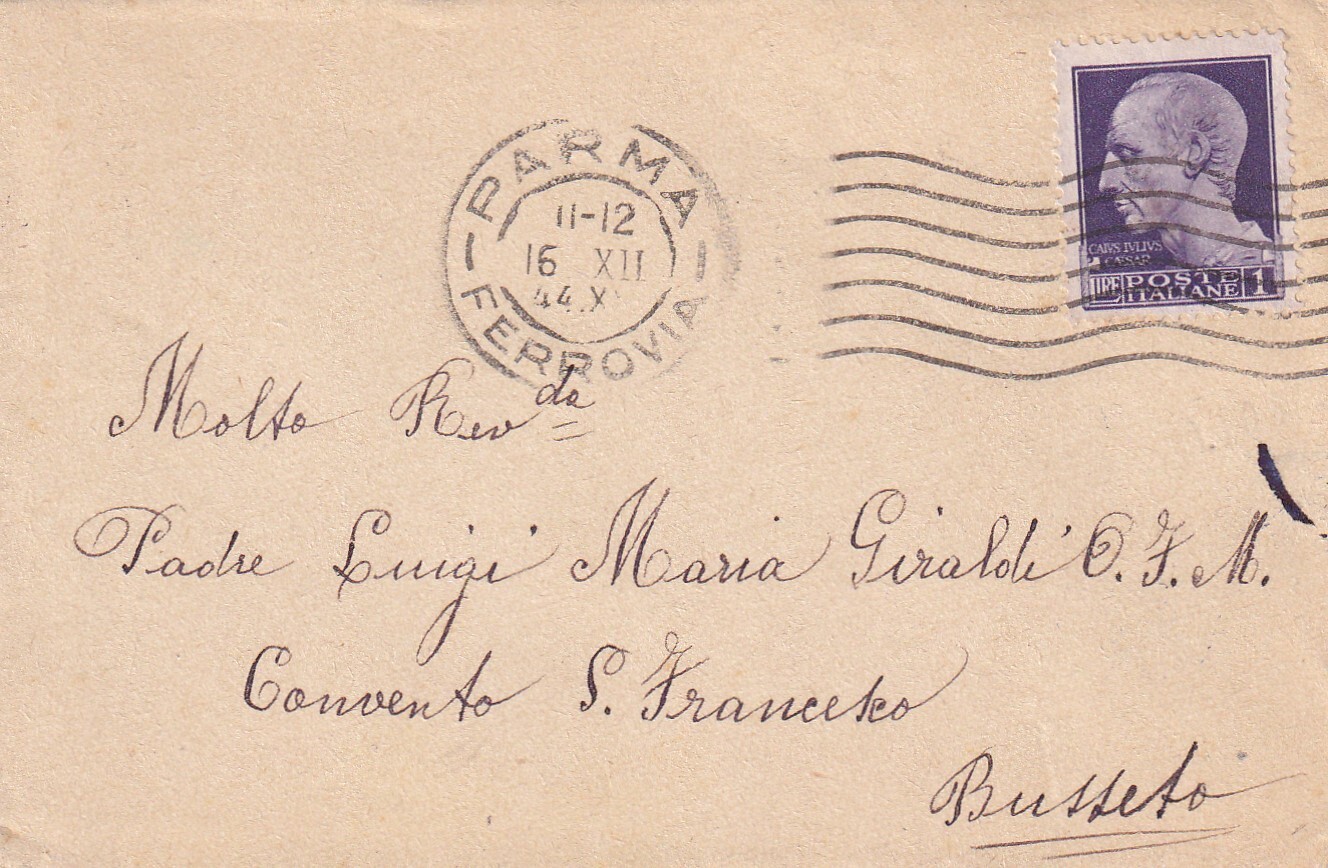 PARMA
11-12
16 XII
44.X
FERROVIA
CAIVS IVLIVS
CAESAR
LIRE POSTE ITALIANE 1
Molto Rev da
Padre Luigi Maria Giraldi O.F.M.
Convento S. Francesco
Busseto